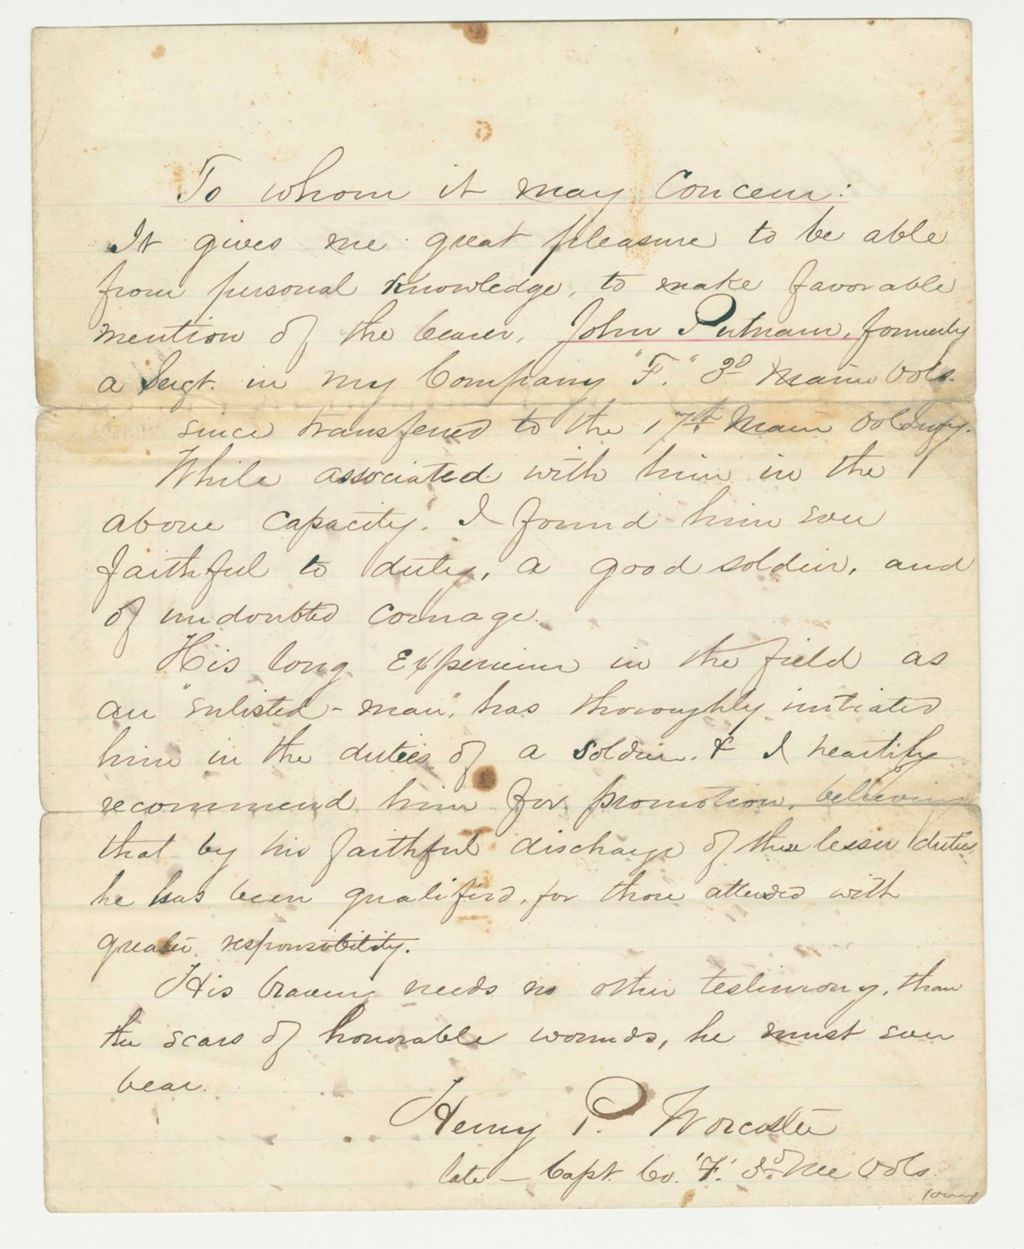 To whom it may Concern:
It gives me great pleasure to be able
from personal knowledge, to make favorable
mention of the bearer, John Putnam, formerly
a Sergt. in my Company "F." 3d Maine Vols.
since transferred to the 17th Maine Vol Infy.
While associated with him in the
above capacity. I found him ever
faithful to duty, a good soldier, and
of undoubted courage.
His long Experience in the field as
an "enlisted-man", has thoroughly initiated
him in the duties of a soldier. & I heartily
recommend him for promotion, believing
that by his faithful discharge of these lesser duties
he has been qualified, for those attended with
greater responsibility.
His bravery needs no other testimony, than
the scars of honorable wounds, he must ever
bear.
Henry P. Worcester
late - Capt. Co. "F". 3d Me Vols.